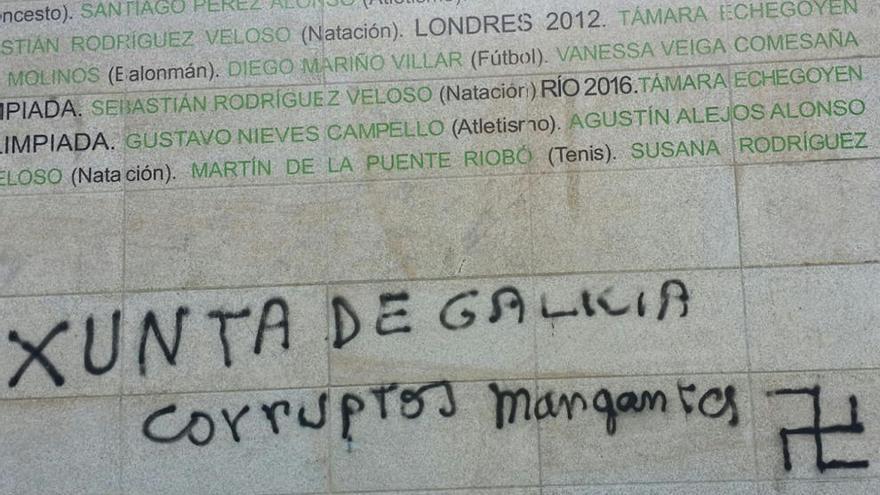 oncesto). SANTIAGO PÉREZ ALONSO
STIÁN RODRÍGUEZ VELOSO (Natación). LONDRES 2012. TÁMARA ECHEGOYEN
MOLINOS (Balonmán). DIEGO MARIÑO VILLAR (Fútbol). VANESSA VEIGA COMESAÑA
MPIADA. SEBASTIÁN RODRÍGUEZ VELOSO (Natación) RÍO 2016.TÁMARA ECHEGOYEN
LIMPIADA. GUSTAVO NIEVES CAMPELLO (Atletismo). AGUSTÍN ALEJOS ALONSO
ELOSO (Natación). MARTÍN DE LA PUENTE RIOBÓ (Tenis). SUSANA RODRÍGUEZ
XUNTA DE GALICIA
corruptos mangantes